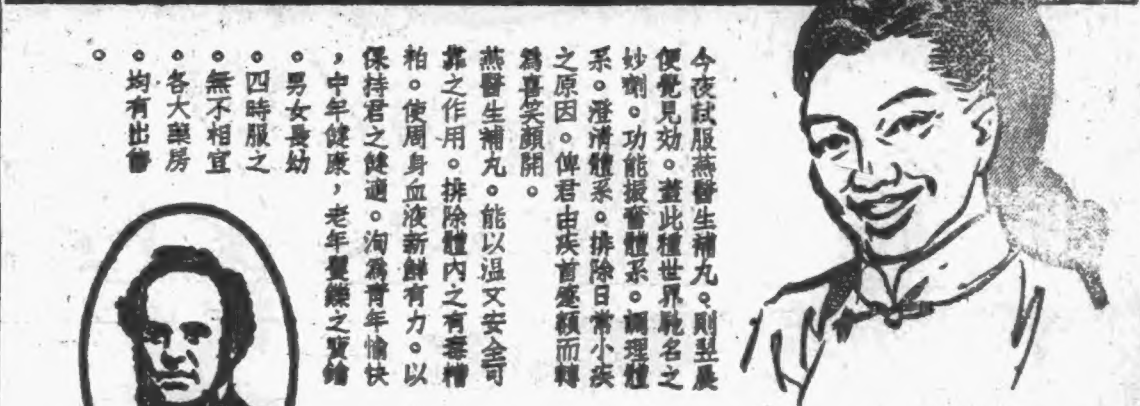 今夜試服燕醫生補丸。則翌晨
便覺見効。蓋此種世界馳名之
妙劑。功能振奮體系。調理體
系。澄清體系。排除日常小疾
之原因。俾君由疾首蹙額而轉
為喜笑顏開。
燕醫生補丸。能以溫文安全可
靠之作用。排除體內之有毒糟
粕。使周身血液新鮮有力。以
保持君之健適。洵為青年愉快
，中年健康，老年矍鑠之寶
。男女長幼
。四時服之
。無不相宜
。各大藥房
。均有出售
。